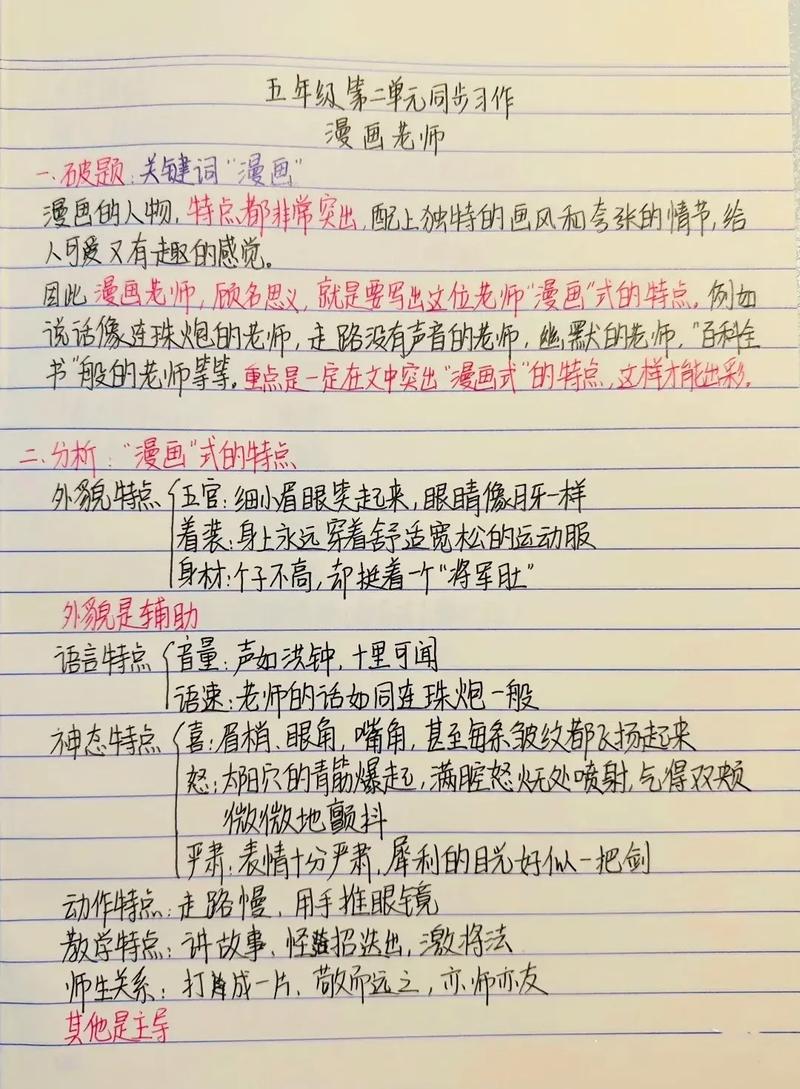 五年级第二单元同步习作
漫画老师
一.破题:关键词"漫画"
漫画的人物,特点都非常突出,配上独特的画风和夸张的情节,给
人可爱又有趣的感觉。
因此漫画老师,顾名思义,就是要写出这位老师"漫画"式的特点。例如
说话像连珠炮的老师,走路没有声音的老师,幽默的老师,"百科全
书"般的老师等等。重点是一定在文中突出"漫画式"的特点,这样才能出彩。
二.分析:"漫画"式的特点
外貌特点 五官:细小眉眼笑起来,眼睛像月牙一样
着装:身上永远穿着舒适宽松的运动服
身材:个子不高,却挺着一个"将军肚"
外貌是辅助
语言特点 音量:声如洪钟,十里可闻
语速:老师的话如同连珠炮一般
神态特点 喜:眉梢、眼角,嘴角,甚至每条皱纹都飞扬起来
怒:太阳穴的青筋爆起,满腔怒火无处喷射,气得双颊
微微地颤抖
严肃:表情十分严肃,犀利的目光好似一把剑
动作特点:走路慢、用手推眼镜
教学特点:讲故事、怪招迭出,激将法
师生关系:打成一片、敬而远之,亦师亦友
其他是主导